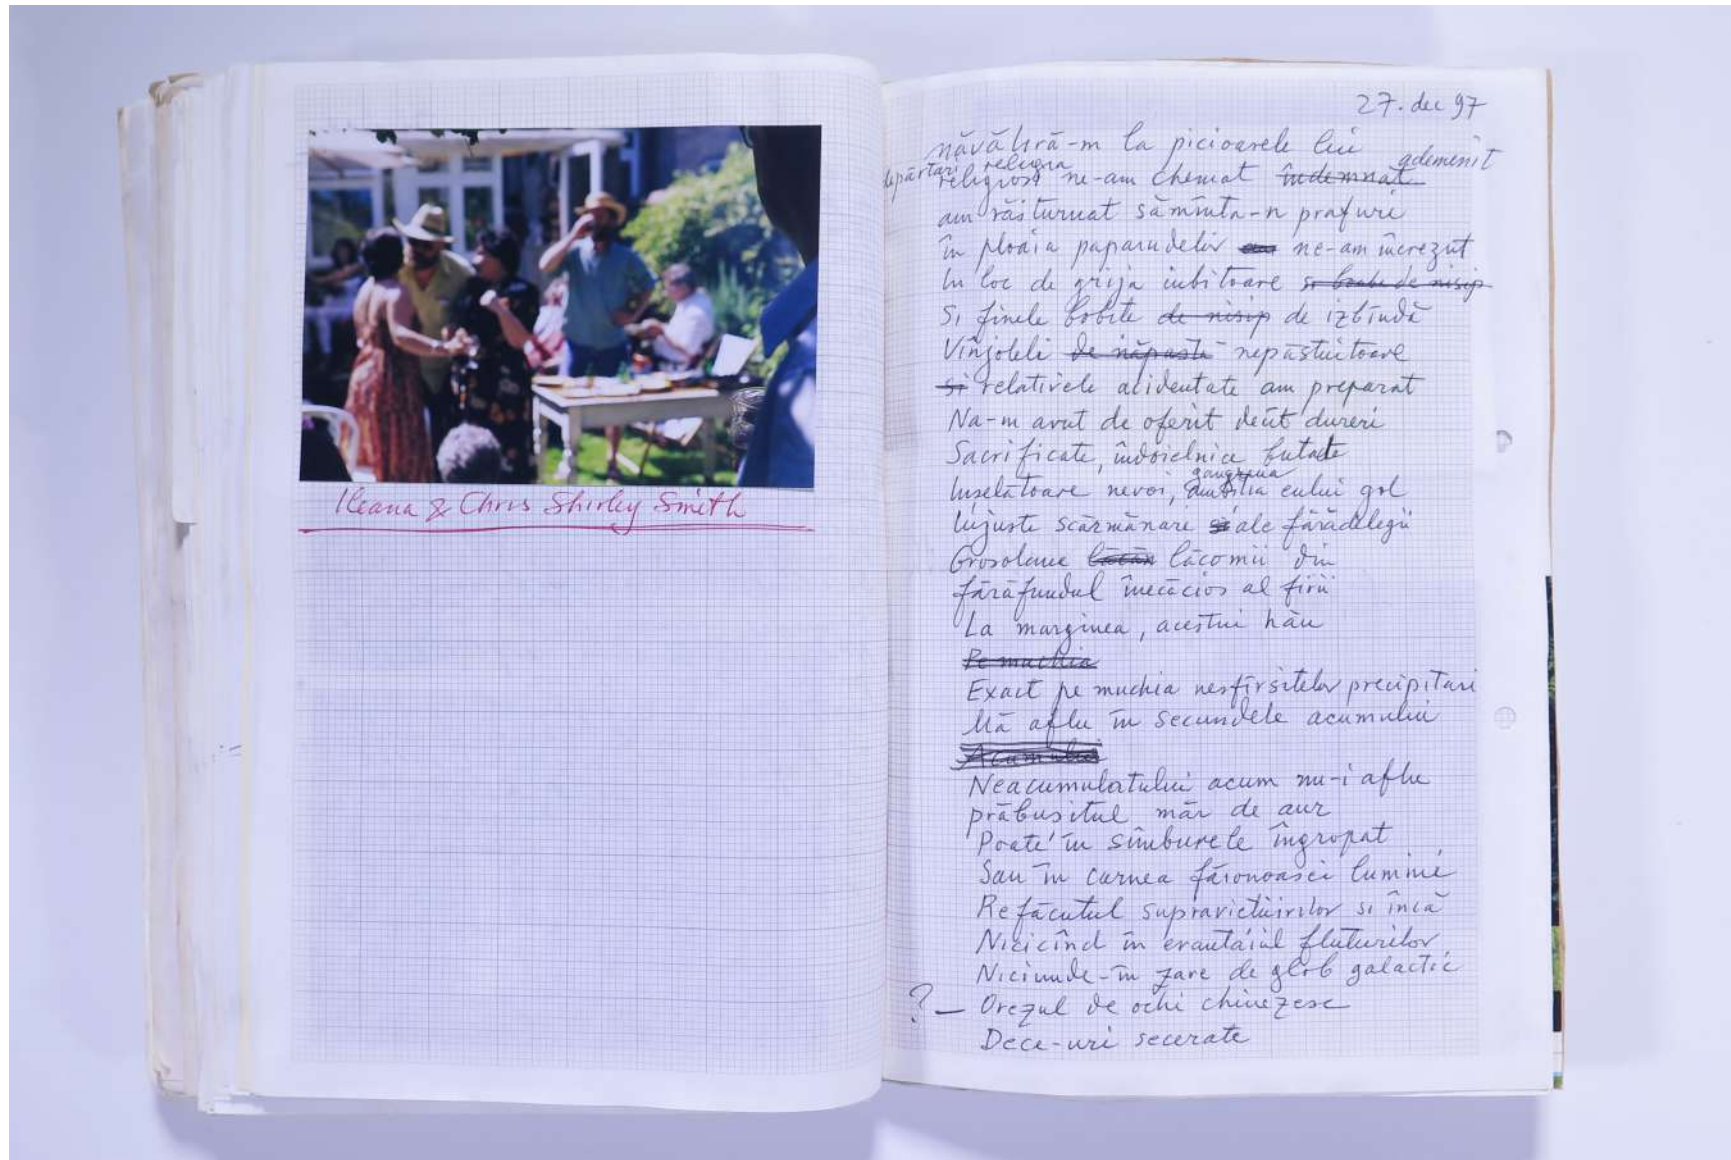 Ileana & Chris Shirley Smith
27. dec 97
la picioarele lui
religia ademenit
depărtări religiosi ne-am chemat îndemnat
am răsturnat sămînta-n prafuri
în ploaia paparudelor ne-am încrezut
In loc de grija iubitoare si boabe de nisip
Si finele bobite de nisip de izbîndă
Vînjoleli de năpastă nepăstuitoare
si relativele accidentate am preparat
Na-m avut de oferit decît dureri
Sacrificate, îndoielnice butade
gangrena
Inselătoare nevoi, ambitia eului gol
Injuste scărmănari si ale fărădelegii
Grosolane lăcomii din
fărăfundul înecăcios al firii
La marginea, acestui hău
Pe muchia
Exact pe muchia nesfîrsitelor precipitari
Mă aflu în secundele acumului
Acumului
Neacumulatului acum nu-i aflu
prăbusitul măr de aur
Poate în sîmburele îngropat
Sau în carnea făionoasei lumini
Refăcutul supravietuirilor si încă
Nicicînd în evantaiul fluturilor
Niciunde-în zare de glob galactic
? — Orezul de ochi chinezesc
Dece-uri secerate